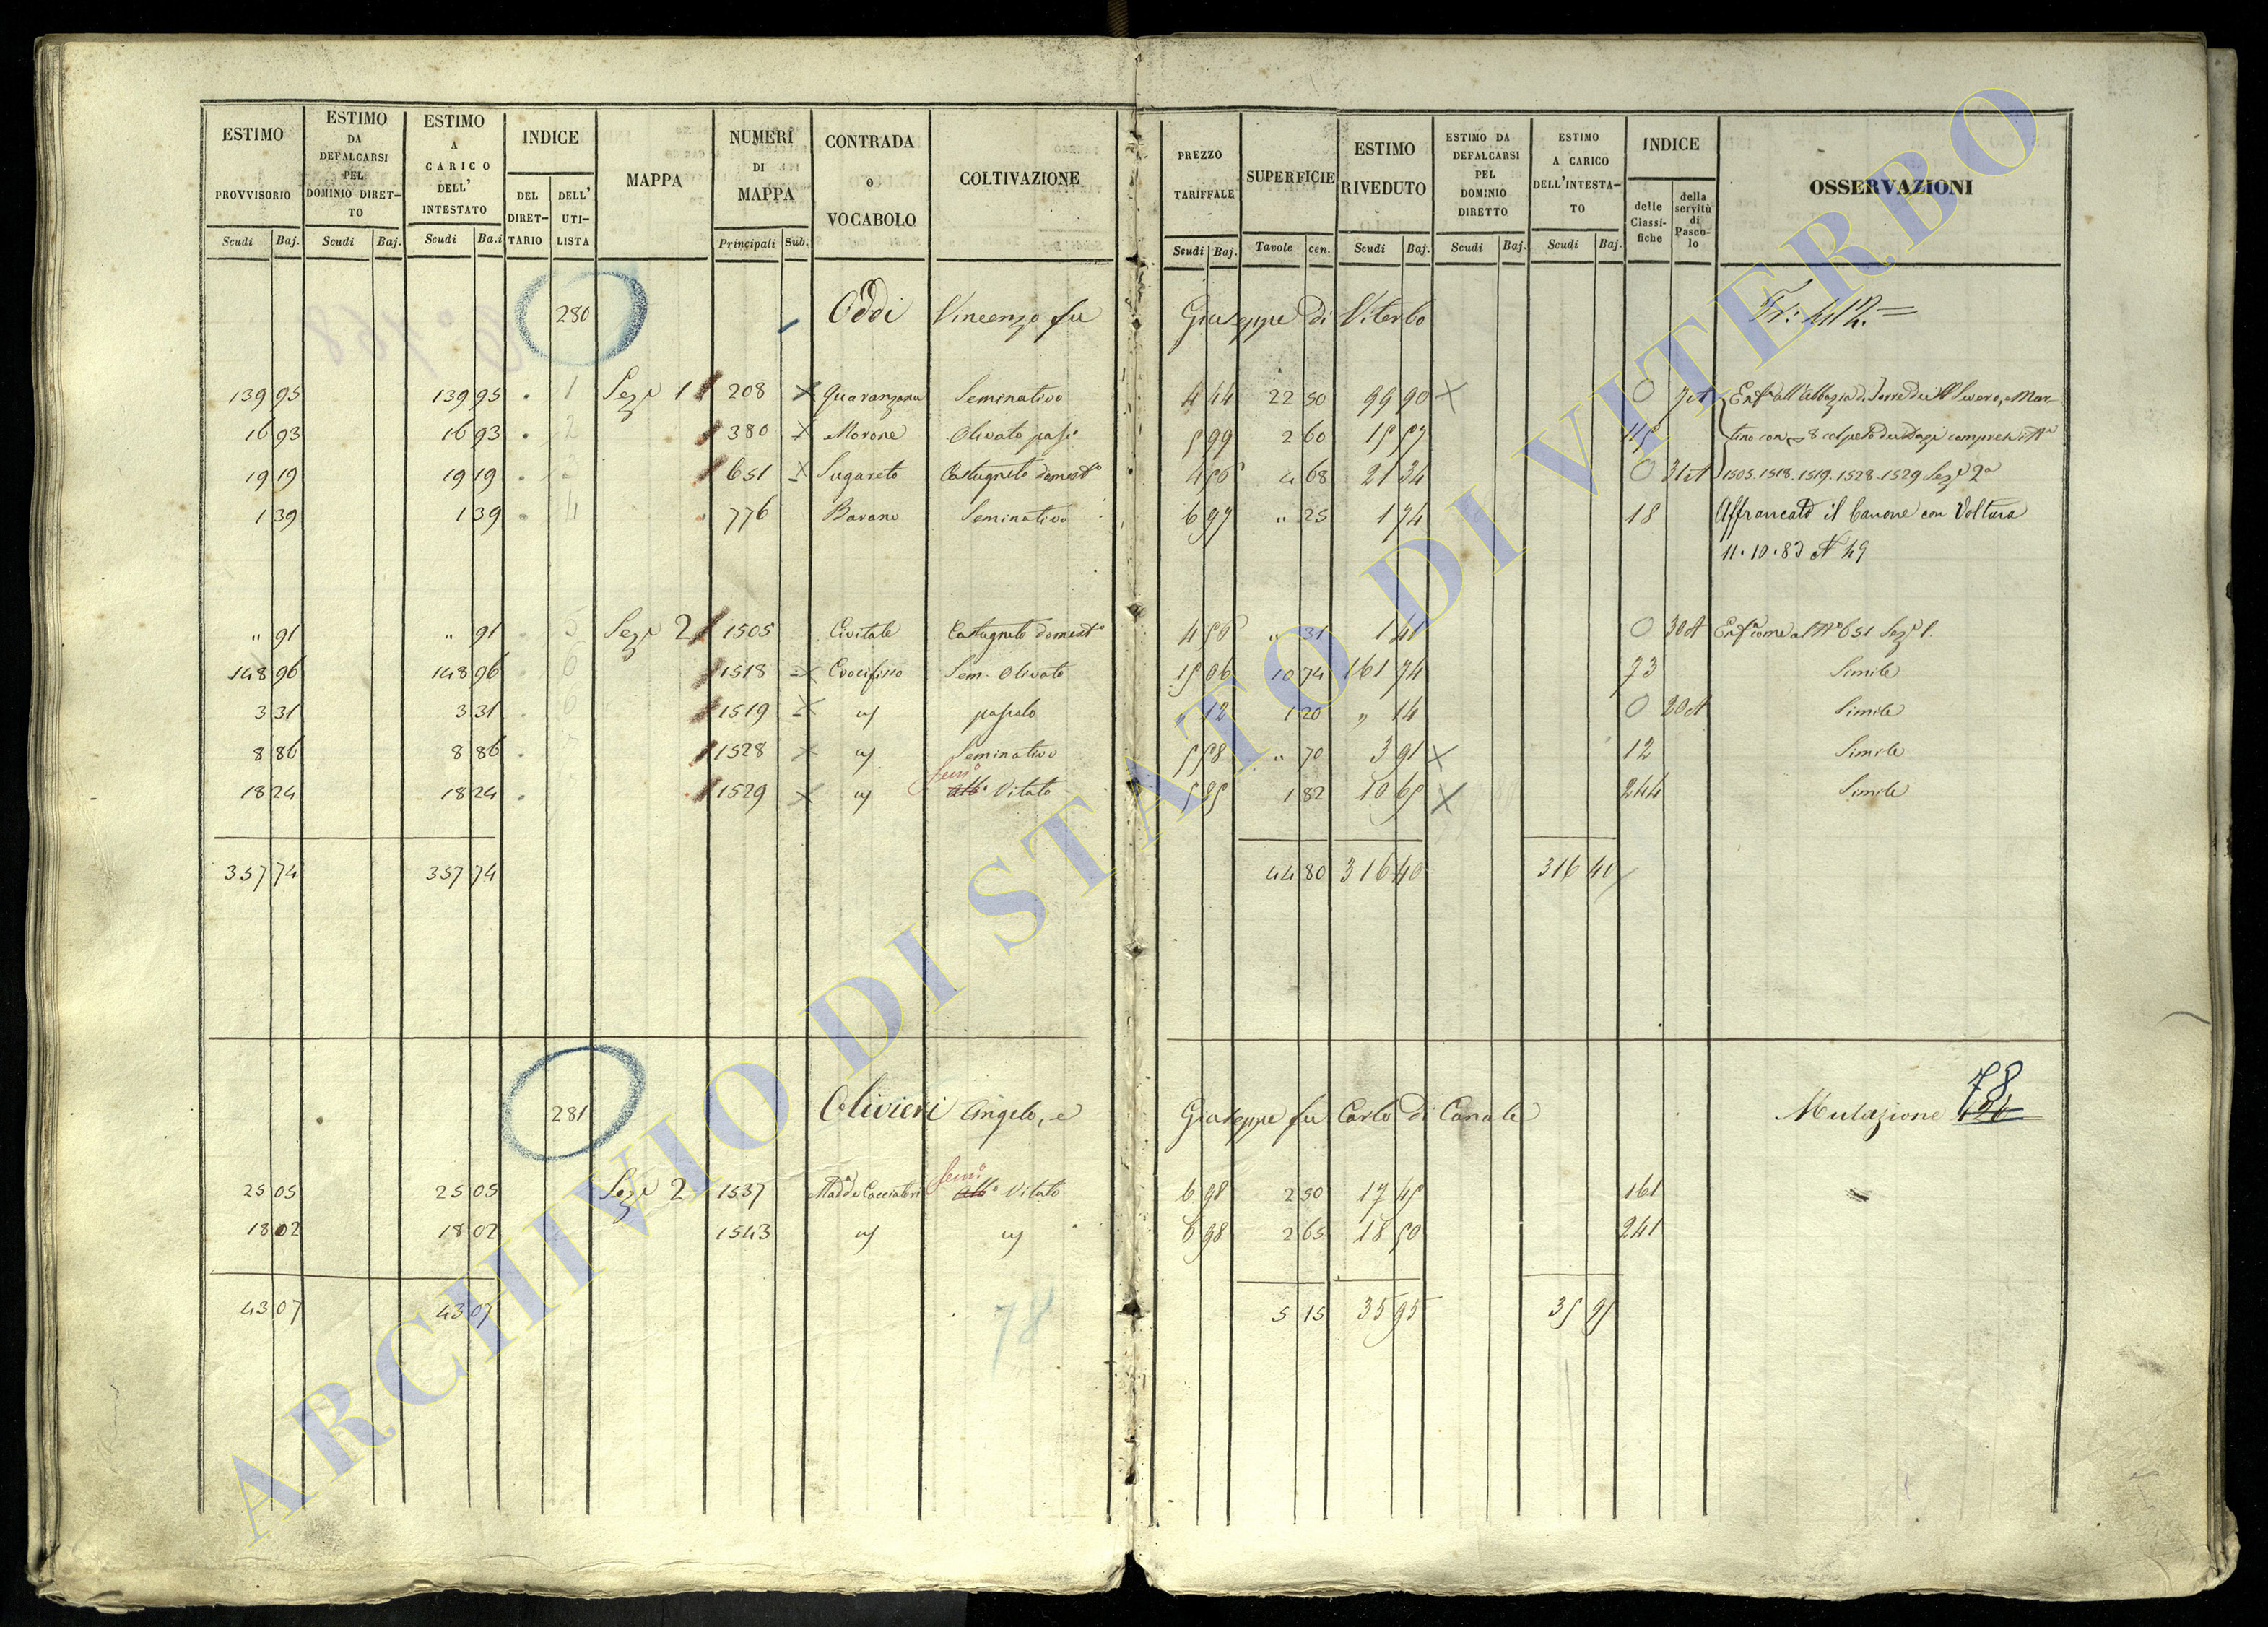 ESTIMO PROVVISORIO
ESTIMO DA DEFALCARSI PEL DOMINIO DIRETTO
ESTIMO A CARICO DELL' INTESTATO
INDICE
DEL DIRETTARIO
DELL' UTILISTA
MAPPA
NUMERI DI MAPPA
CONTRADA O VOCABOLO
COLTIVAZIONE
PREZZO TARIFFALE
SUPERFICIE
ESTIMO RIVEDUTO
ESTIMO DA DEFALCARSI PEL DOMINIO DIRETTO
ESTIMO A CARICO DELL'INTESTATO
INDICE
delle Classifiche
della servitù di Pascolo
OSSERVAZIONI
Scudi Baj. Scudi Baj. Scudi Ba.i Principali Sub. Scudi Baj. Tavole cen. Scudi Baj. Scudi Baj. Scudi Baj.
280 Oddi Vincenzo fu Giuseppe di Viterbo
139 95 139 95 1 Sez. 1 208 Quaranzana Seminativo 4 44 22 50 99 90 0
16 93 16 93 2 380 Morone Olivato pas. 5 99 2 60 15 57 115
19 19 19 19 3 651 Sugareto Castagneto domest. 4 56 4 68 21 34 0 31A 1505. 1518. 1519. 1528. 1529 Sez. 2a
1 39 1 39 4 776 Barano Seminativo 6 97 " 25 1 74 18 Affrancato il Canone con Voltura
11.10.83 N 49
" 91 " 91 5 Sez. 2 1505 Civitale Castagneto domest. 4 56 " 31 1 41 0 30A come al N 651 Sez. 1.
148 96 148 96 1518 Crocifisso Sem. Olivato 15 06 10 74 161 74 73 Simile
3 31 3 31 1519 pascolo " 12 1 20 " 14 0 20A Simile
8 86 8 86 1528 Seminativo 5 58 " 70 3 91 12 Simile
18 24 18 24 1529 Sem. Vitato 5 85 1 82 10 65 244 Simile
357 74 357 74 44 80 316 40 316 40
281 Olivieri Angelo, e Giuseppe fu Carlo di Canale Mutazione 78
25 05 25 05 Sez. 2 1537 Sem. Vitato 6 98 2 50 17 45 161
18 02 18 02 1543 6 98 2 65 18 50 241
43 07 43 07 5 15 35 95 35 95
78
ARCHIVIO DI STATO DI VITERBO